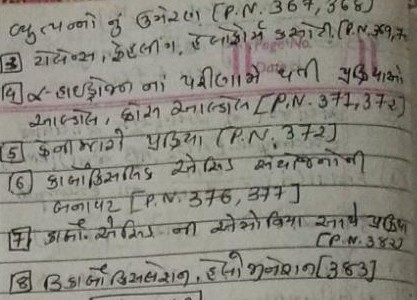 વ્યુત્પન્નો નું ઉમેરણ [P.N. 367, 368]
[3] ટોલેન્સ, ફેહલીંગ, હેલોફોર્મ કસોટી. [P.N. 369, 7
[4] α-હાઇડ્રોજન નાં પરીણામે થતી પ્રક્રિયાઓ
આલ્ડોલ, ક્રોસ આલ્ડોલ [P.N. 371, 372]
[5] કેનીઝારો પ્રક્રિયા [P.N. 372]
[6] કાર્બોક્સિલિક એસિડ સંયોજનોની
બનાવટ [P.N. 376, 377]
[7] કાર્બો. એસિડ ની એમોનિયા સાથે પ્રક્રિયા
[P.N. 382]
[8] ડિકાર્બોક્સિલેશન, હેલોજીનેશન [383]